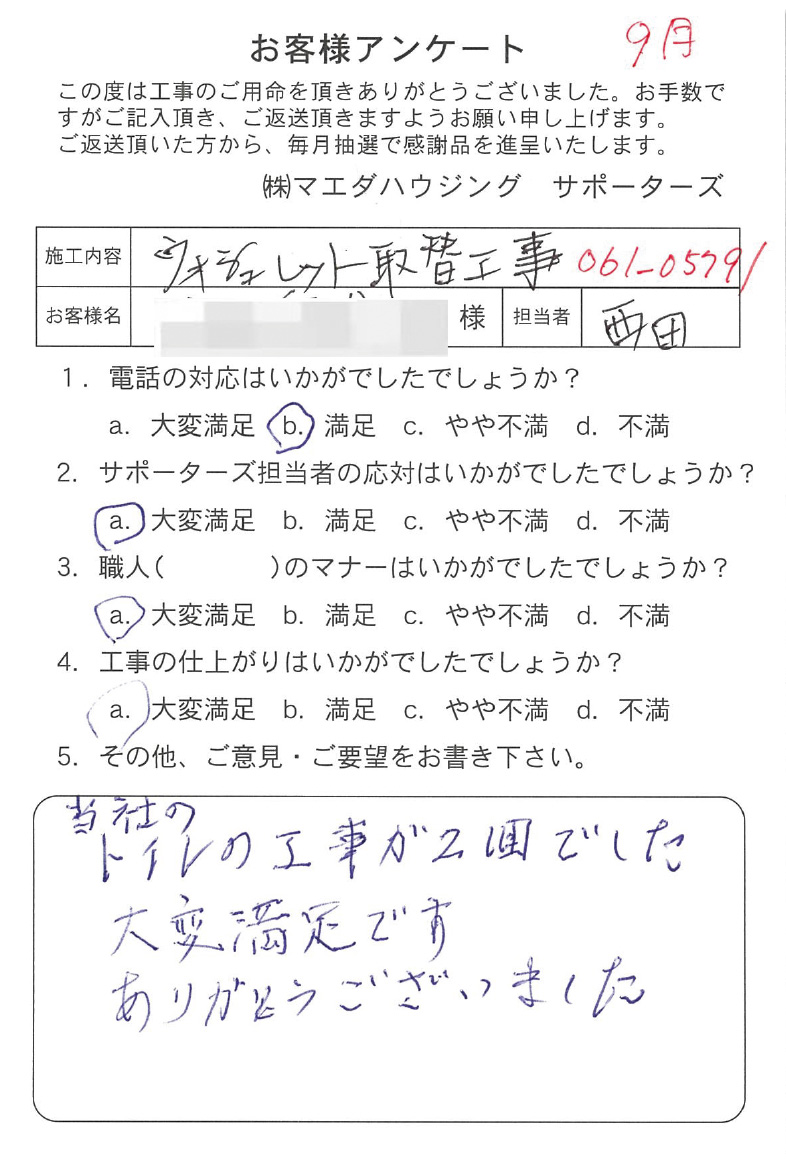 お客様アンケート 9月
この度は工事のご用命を頂きありがとうございました。お手数で
すがご記入頂き、ご返送頂きますようお願い申し上げます。
ご返送頂いた方から、毎月抽選で感謝品を進呈いたします。
㈱マエダハウジング サポーターズ
施工内容 ウォシュレット取替工事 061-05791
お客様名 様 担当者 西田
1. 電話の対応はいかがでしたでしょうか？
a. 大変満足 b. 満足 c. やや不満 d. 不満
2. サポーターズ担当者の応対はいかがでしたでしょうか？
a. 大変満足 b. 満足 c. やや不満 d. 不満
3. 職人( )のマナーはいかがでしたでしょうか？
a. 大変満足 b. 満足 c. やや不満 d. 不満
4. 工事の仕上がりはいかがでしたでしょうか？
a. 大変満足 b. 満足 c. やや不満 d. 不満
5. その他、ご意見・ご要望をお書き下さい。
当社の
トイレの工事が2回でした
大変満足です
ありがとうございました